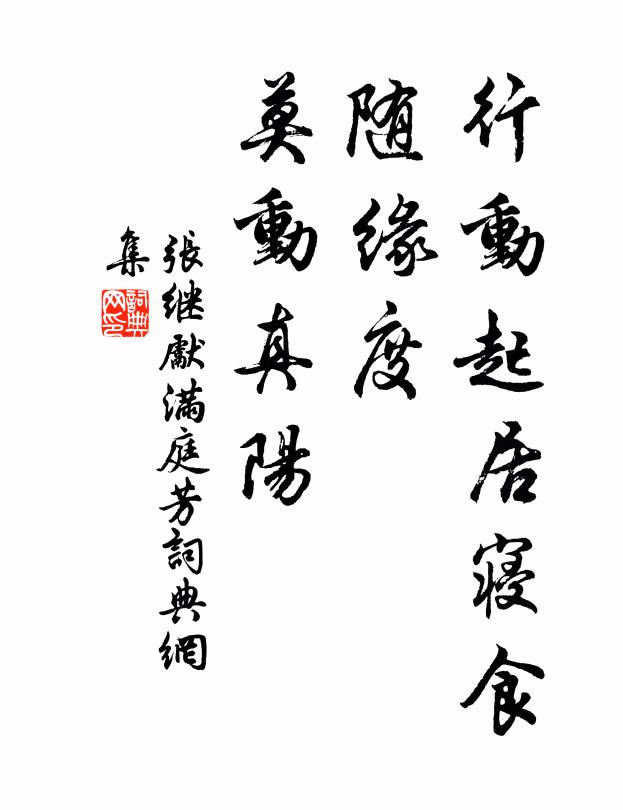 行動起居寝食
随緣度
莫動真陽
張继獻滿庭芳詞典網
集
詞典
网印